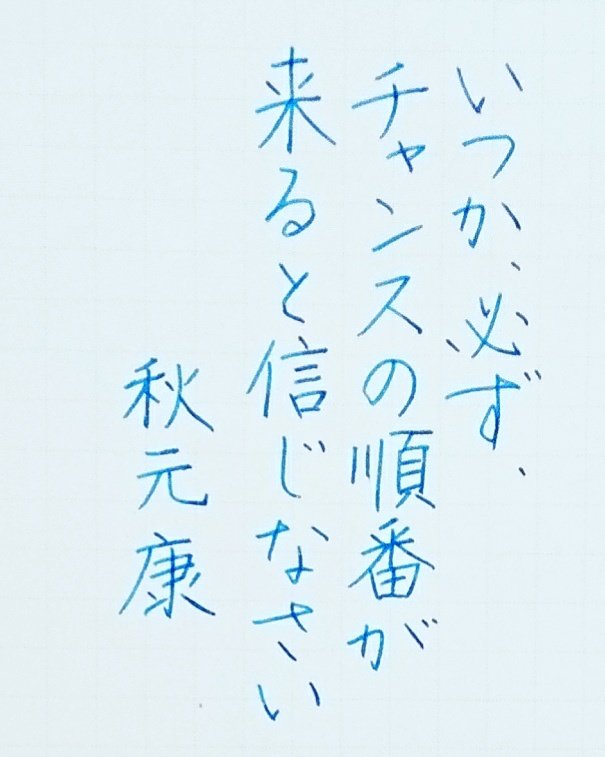 いつか、必ず、
チャンスの順番が
来ると信じなさい
秋元康